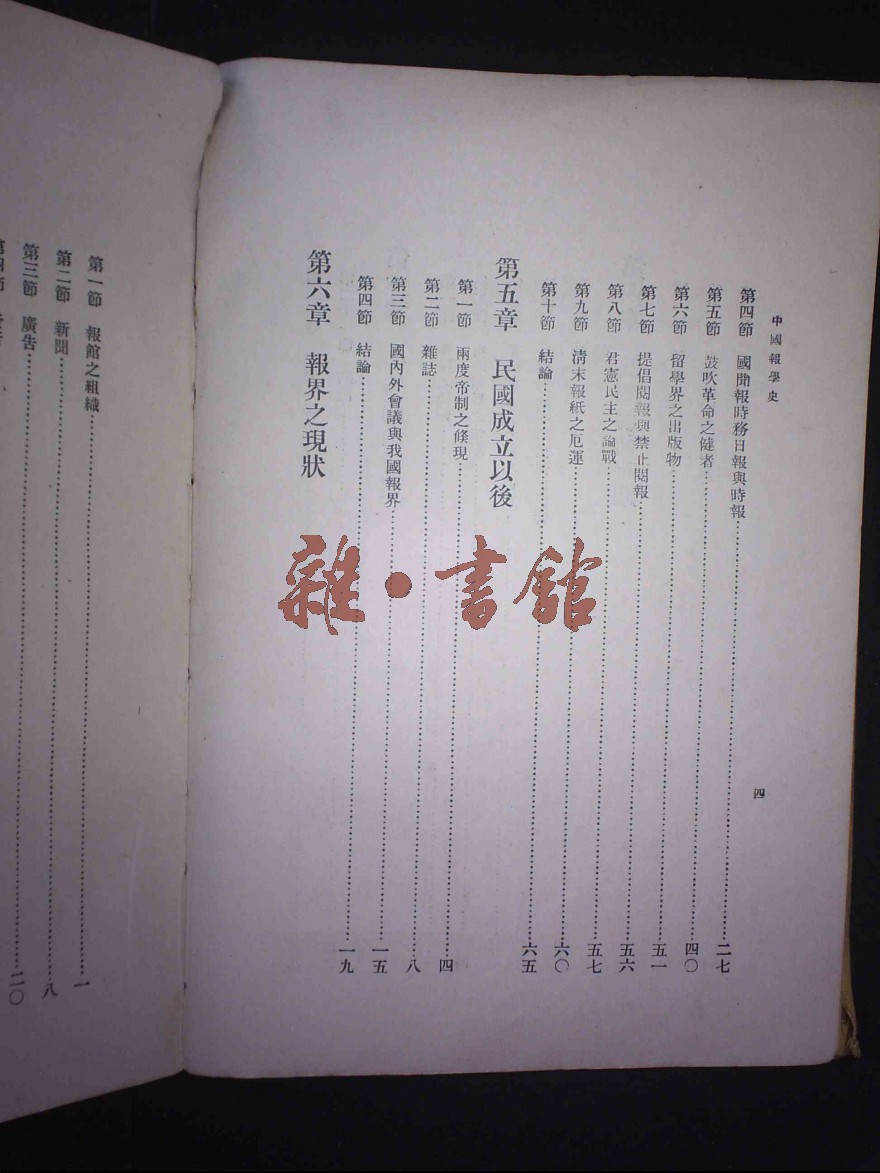 中國報學史
四
第四節 國聞報時務日報與時報……二七
第五節 鼓吹革命之健者……四〇
第六節 留學界之出版物……五一
第七節 提倡閱報與禁止閱報……五六
第八節 君憲民主之論戰……五七
第九節 清末報紙之厄運……六〇
第十節 結論……六五
第五章 民國成立以後
第一節 兩度帝制之倏現……四
第二節 雜誌……八
第三節 國內外會議與我國報界……一五
第四節 結論……一九
第六章 報界之現狀
第一節 報館之組織……一
第二節 新聞……八
第三節 廣告……二〇
第四節
雜·書館